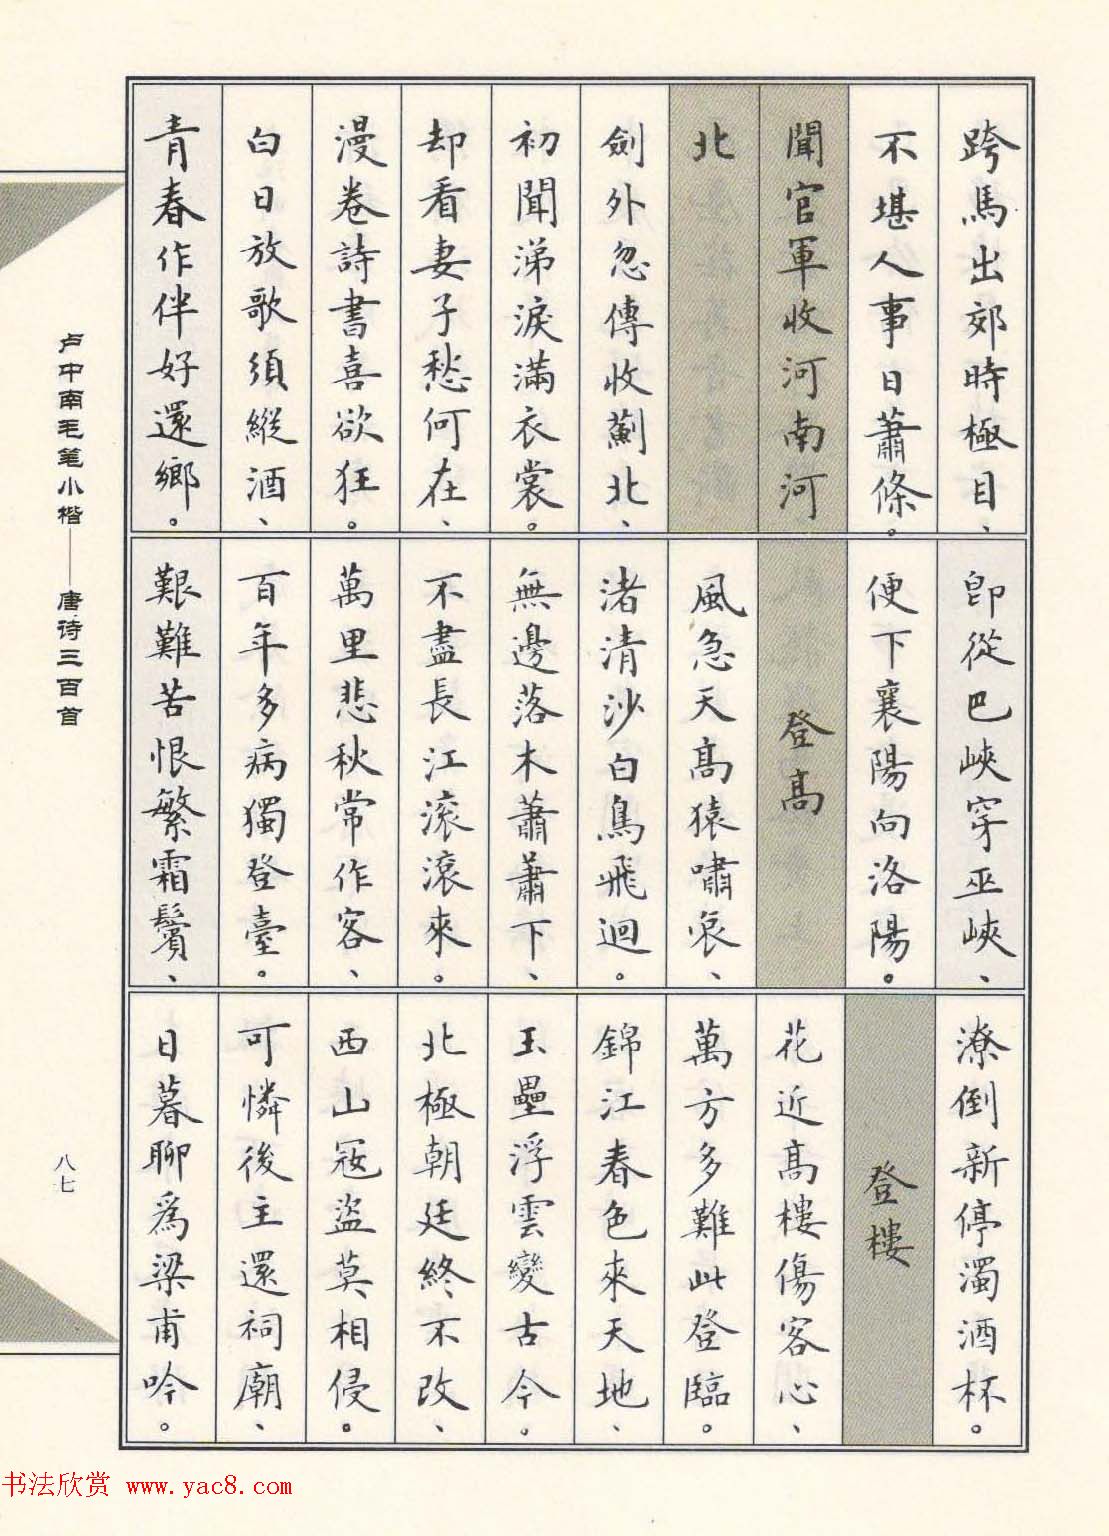 跨馬出郊時極目、
不堪人事日蕭條。
聞官軍收河南河
北
劍外忽傳收薊北、
初聞涕淚滿衣裳。
却看妻子愁何在、
漫卷詩書喜欲狂。
白日放歌須縱酒、
青春作伴好還鄉。
即從巴峽穿巫峽、
便下襄陽向洛陽。
登高
風急天高猿嘯哀、
渚清沙白鳥飛迴。
無邊落木蕭蕭下、
不盡長江滾滾來。
萬里悲秋常作客、
百年多病獨登臺。
艱難苦恨繁霜鬢、
潦倒新停濁酒杯。
登樓
花近高樓傷客心、
萬方多難此登臨。
錦江春色來天地、
玉壘浮雲變古今。
北極朝廷終不改、
西山寇盜莫相侵。
可憐後主還祠廟、
日暮聊爲梁甫吟。
卢中南毛笔小楷——唐诗三百首
八七
书法欣赏 www.yac8.com